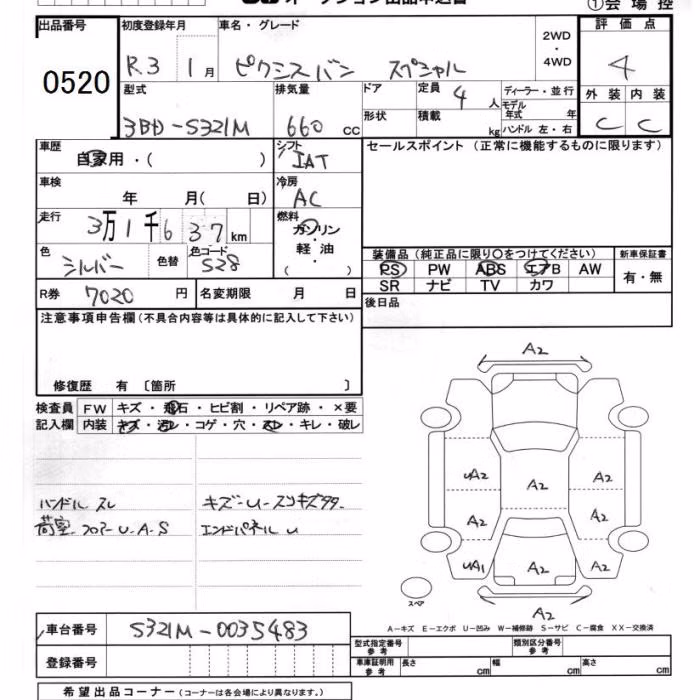 オークション出品申込書
①会場控
出品番号 初度登録年月 車名・グレード 2WD・4WD 評価点
0520 R.3 1月 ピクシスバン スペシャル 4
型式 排気量 ドア 定員 4人 ディーラー・並行 外装 内装
3BD-S321M 660cc 形状 積載 kg モデル年式 年 C C
ハンドル 左・右
車歴 自家用・( ) シフト IAT セールスポイント(正常に機能するものに限ります)
車検 年 月( 日) 冷房 AC
走行 3万1千637km 燃料 ガソリン・軽油・( )
色 シルバー 色替 色コード S28
装備品(純正品に限り〇をつけてください) 新車保証書
PS PW ABS エアB AW 有・無
SR ナビ TV カワ
R券 7020円 名変期限 月 日 後日品
注意事項申告欄(不具合内容等は具体的に記入して下さい)
修復歴 有 〔箇所 〕
検査員 FW キズ・飛石・ヒビ割・リペア跡・×要
記入欄 内装 キズ・汚レ・コゲ・穴・スレ・キレ・破レ
ハンドル スレ キズ-U-スリキズタタ.
荷室 フロアーU-A-S エンドパネル U
A2
UA2 A2 A2
A2 A2
UA1 A2 A2
A2
スペア
A-キズ E-エクボ U-凹み W-補修跡 S-サビ C-腐食 XX-交換済
車台番号 S321M-0035483 型式指定番号 参考 類別区分番号 参考
登録番号 車庫証明用 参考 長さ cm 幅 cm 高さ cm
希望出品コーナー(コーナーは各会場により異なります。)